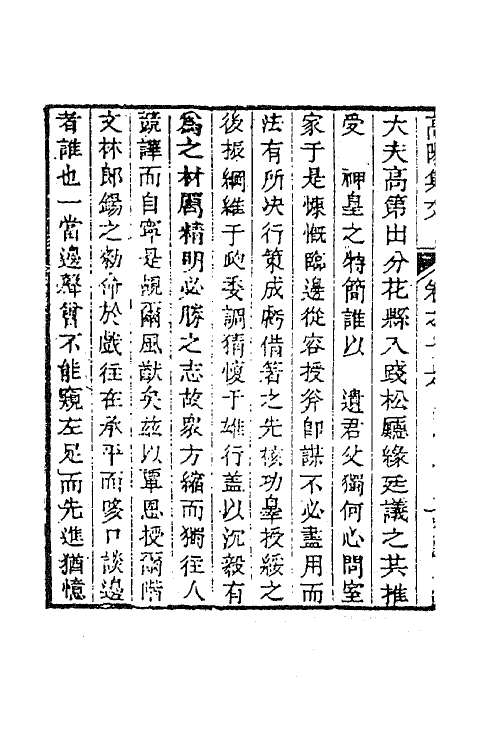 大夫高第出分花縣入踐松廳緣廷議之其推
受　神皇之特簡誰以　遺君父獨何心問室
家于是慷慨臨邊從容授斧即謀不必盡用而
法有所決行策成虧借箸之先核功臯授綏之
後振綱維于政委調猜懷于雄行蓋以沉毅有
爲之材厲精明必勝之志故衆方縮而獨往人
競譁而自寧是覘爾風猷矣茲以覃恩授爾階
文林郎錫之勑命於戲往在承平而哆口談邊
者誰也一當邊壘曾不能窺左足而先進猶憶